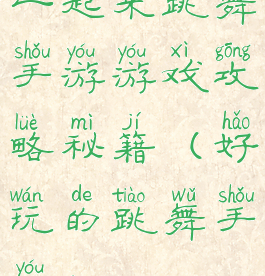 一起来跳舞
shǒu yóu yóu xì gōng
手游游戏攻
lüè mì jí hǎo
略秘籍(好
wán de tiào wǔ shǒu
玩的跳舞手
yóu